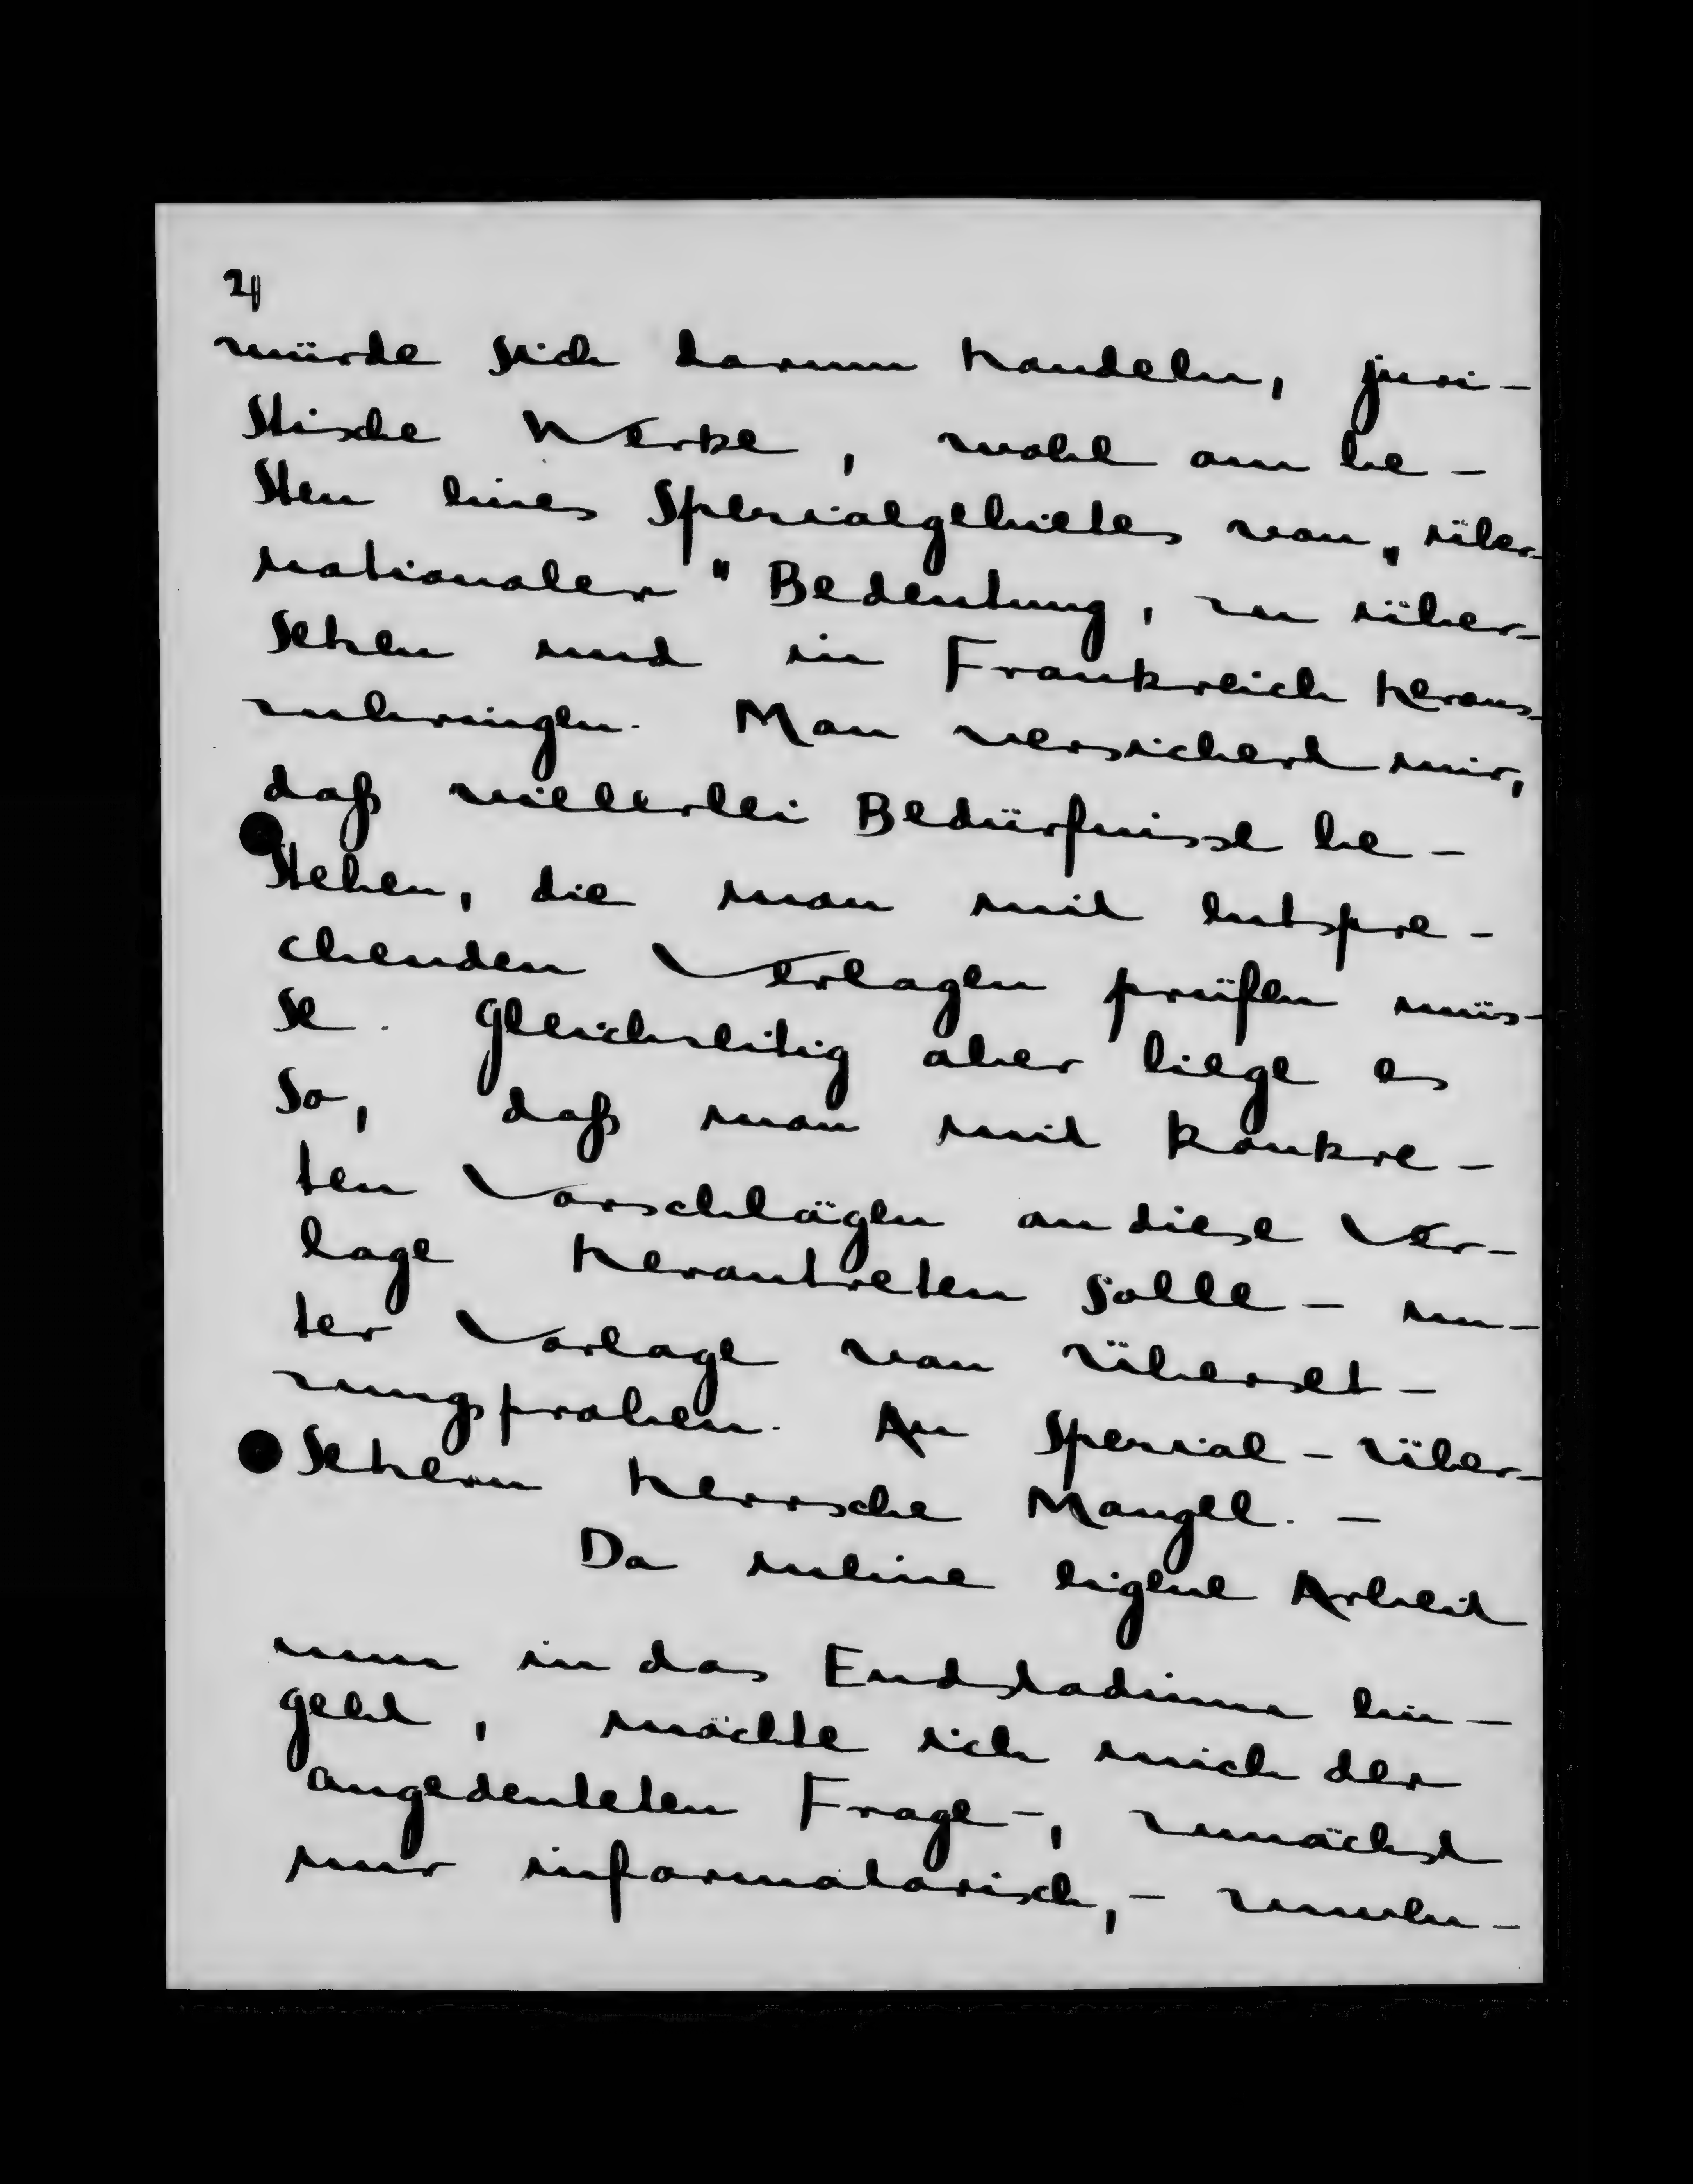 2)
würde sich darum handeln, juri-
stische Werke, wohl am be-
sten eines Spezialgebietes von „über-
nationaler" Bedeutung, zu über-
setzen und in Frankreich heraus-
zubringen. Man versichert mir,
daß vielerlei Bedürfnisse be-
stehen, die man mit entspre-
chenden Verlagen prüfen müs-
se. Gleichzeitig aber liege es
so, daß man mit konkre-
ten Vorschlägen an diese Ver-
lage herantreten solle - un-
ter Vorlage von Überset-
zungsproben. An Spezial-Über-
setzern herrsche Mangel. -
Da meine eigene Arbeit
nun in das Endstadium ein-
geht, möchte ich mich der
angedeuteten Frage -, zunächst
nur informatorisch, - zuwen-